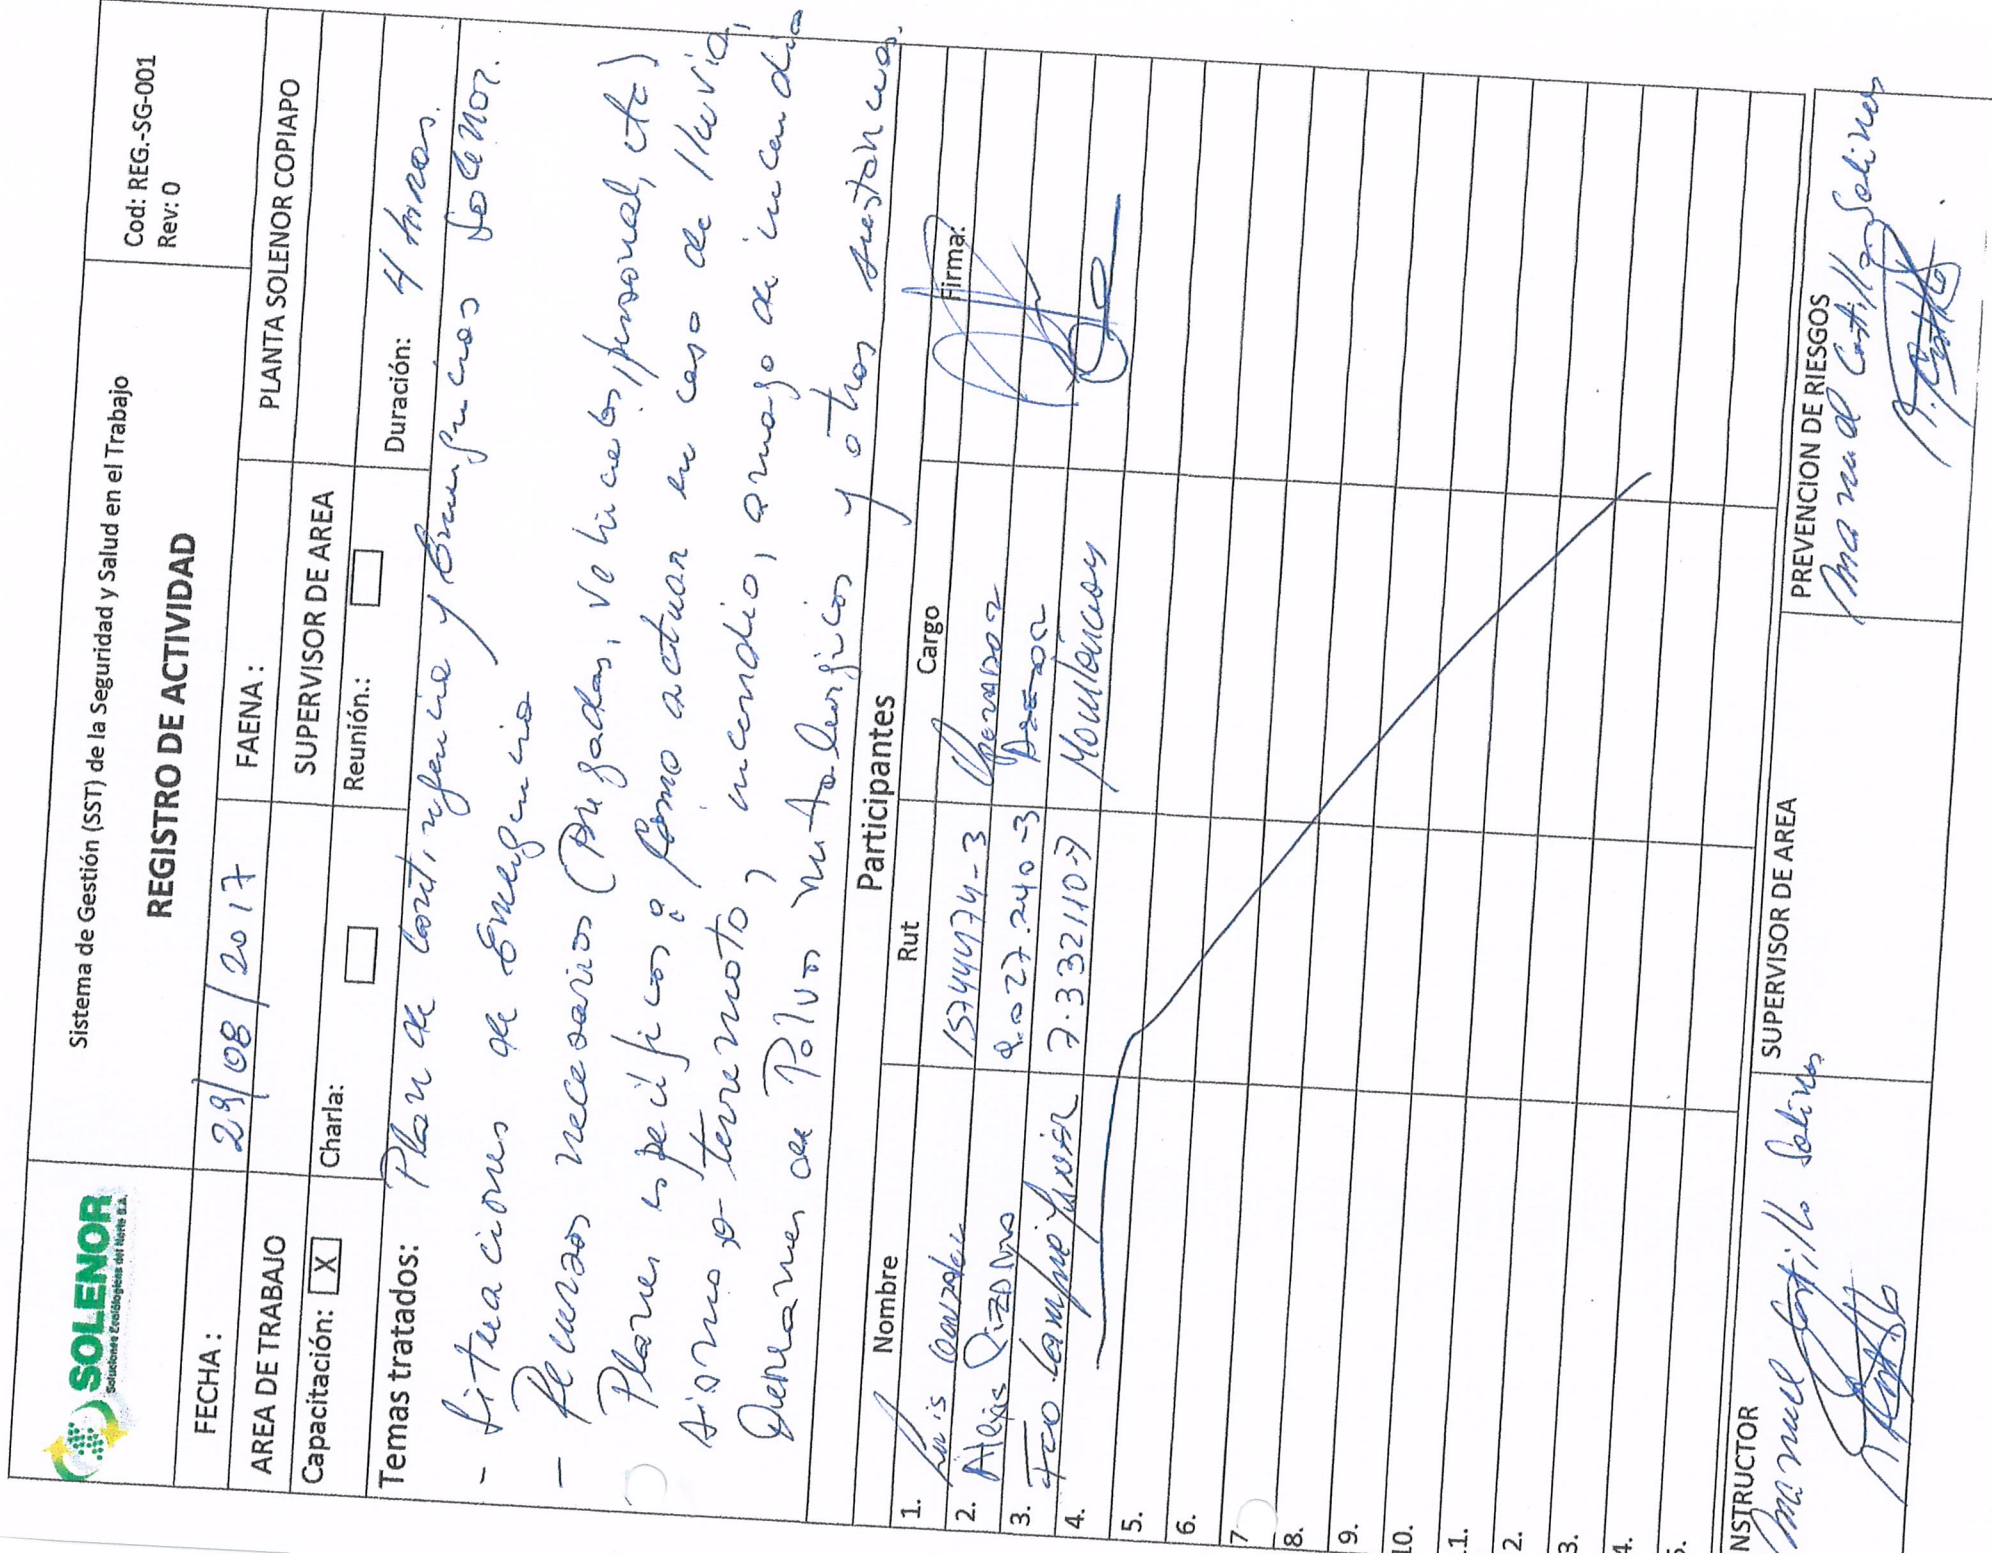 SOLENOR
Soluciones Ecológicas del Norte S.A.
Sistema de Gestión (SST) de la Seguridad y Salud en el Trabajo
REGISTRO DE ACTIVIDAD
Cod: REG.-SG-001
Rev: 0
FECHA : 29/08/2017 FAENA : PLANTA SOLENOR COPIAPO
AREA DE TRABAJO SUPERVISOR DE AREA
Capacitación: X Charla: Reunión.: Duración: 4 horas.
Temas tratados: Plan de Contingencia y Emergencias Solenor.
- Situaciones de Emergencia
- Recursos necesarios (Brigadas, vehiculos, personal, etc)
Planes especificos ¿ Como actuar en caso de lluvia,
sismo o terremoto, incendio, amago de incendio
Derrames de Polvos metalurgicos y otras sustancias.
Participantes
Nombre Rut Cargo Firma:
1. Luis Gonzalez 15744474-3 Operador
2. Alejo Pizarro 9.027.240-3
3. Fco 7.332110-7
4.
5.
6.
7
8.
9.
10.
1.
2.
3.
4.
5.
NSTRUCTOR SUPERVISOR DE AREA PREVENCION DE RIESGOS
Manuel Castillo Salinas Manuel Castillo Salinas